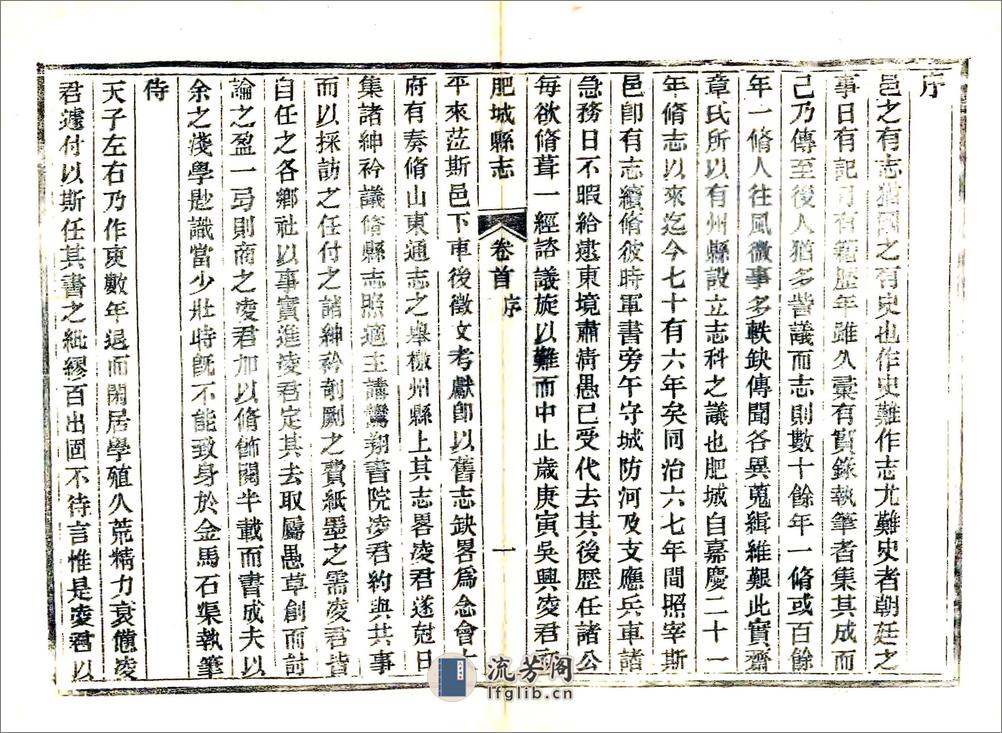 序
邑之有志猶國之有史也作史難作志尤難史者朝廷之
事日有記月有籍歷年雖久彙有實錄執筆者集其成而
己乃傳至後人猶多訾議而志則數十餘年一脩或百餘
年一脩人往風微事多軼缺傳聞各異蒐緝維艱此實齋
章氏所以有州縣設立志科之議也肥城自嘉慶二十一
年脩志以來迄今七十有六年矣同治六七年間照宰斯
邑卽有志續脩彼時軍書旁午守城防河及支應兵車諸
急務日不暇給逮東境肅清愚已受代去其後歷任諸公
每欲脩葺一經諮議旋以難而中止歲庚寅吳興凌君
肥城縣志
卷首
序
一
平來莅斯邑下車後徵文考獻卽以舊志缺畧爲念會
府有奏脩山東通志之舉檄州縣上其志畧凌君遂尅日
集諸紳衿議脩縣志照適主講鸞翔書院凌君約與共事
而以採訪之任付之諸紳衿剞劂之費紙墨之需凌君皆
自任之各鄉社以事實進凌君定其去取屬愚草創而討
論之盈一弓則商之凌君加以脩飾閱半載而書成夫以
余之淺學尠識當少壯時旣不能致身於金馬石渠執筆
侍
天子左右乃作吏數年退而閑居學殖久荒精力衰憊凌
君遽付以斯任其書之紕繆百出固不待言惟是凌君以
流芳閣
lfglib.cn